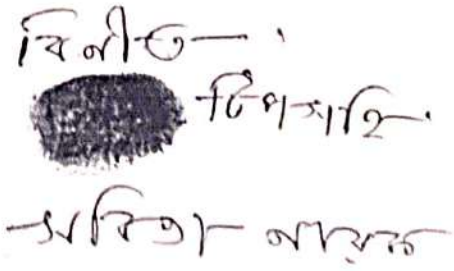 বিনীত
টিপসহি
সবিতা নায়ক